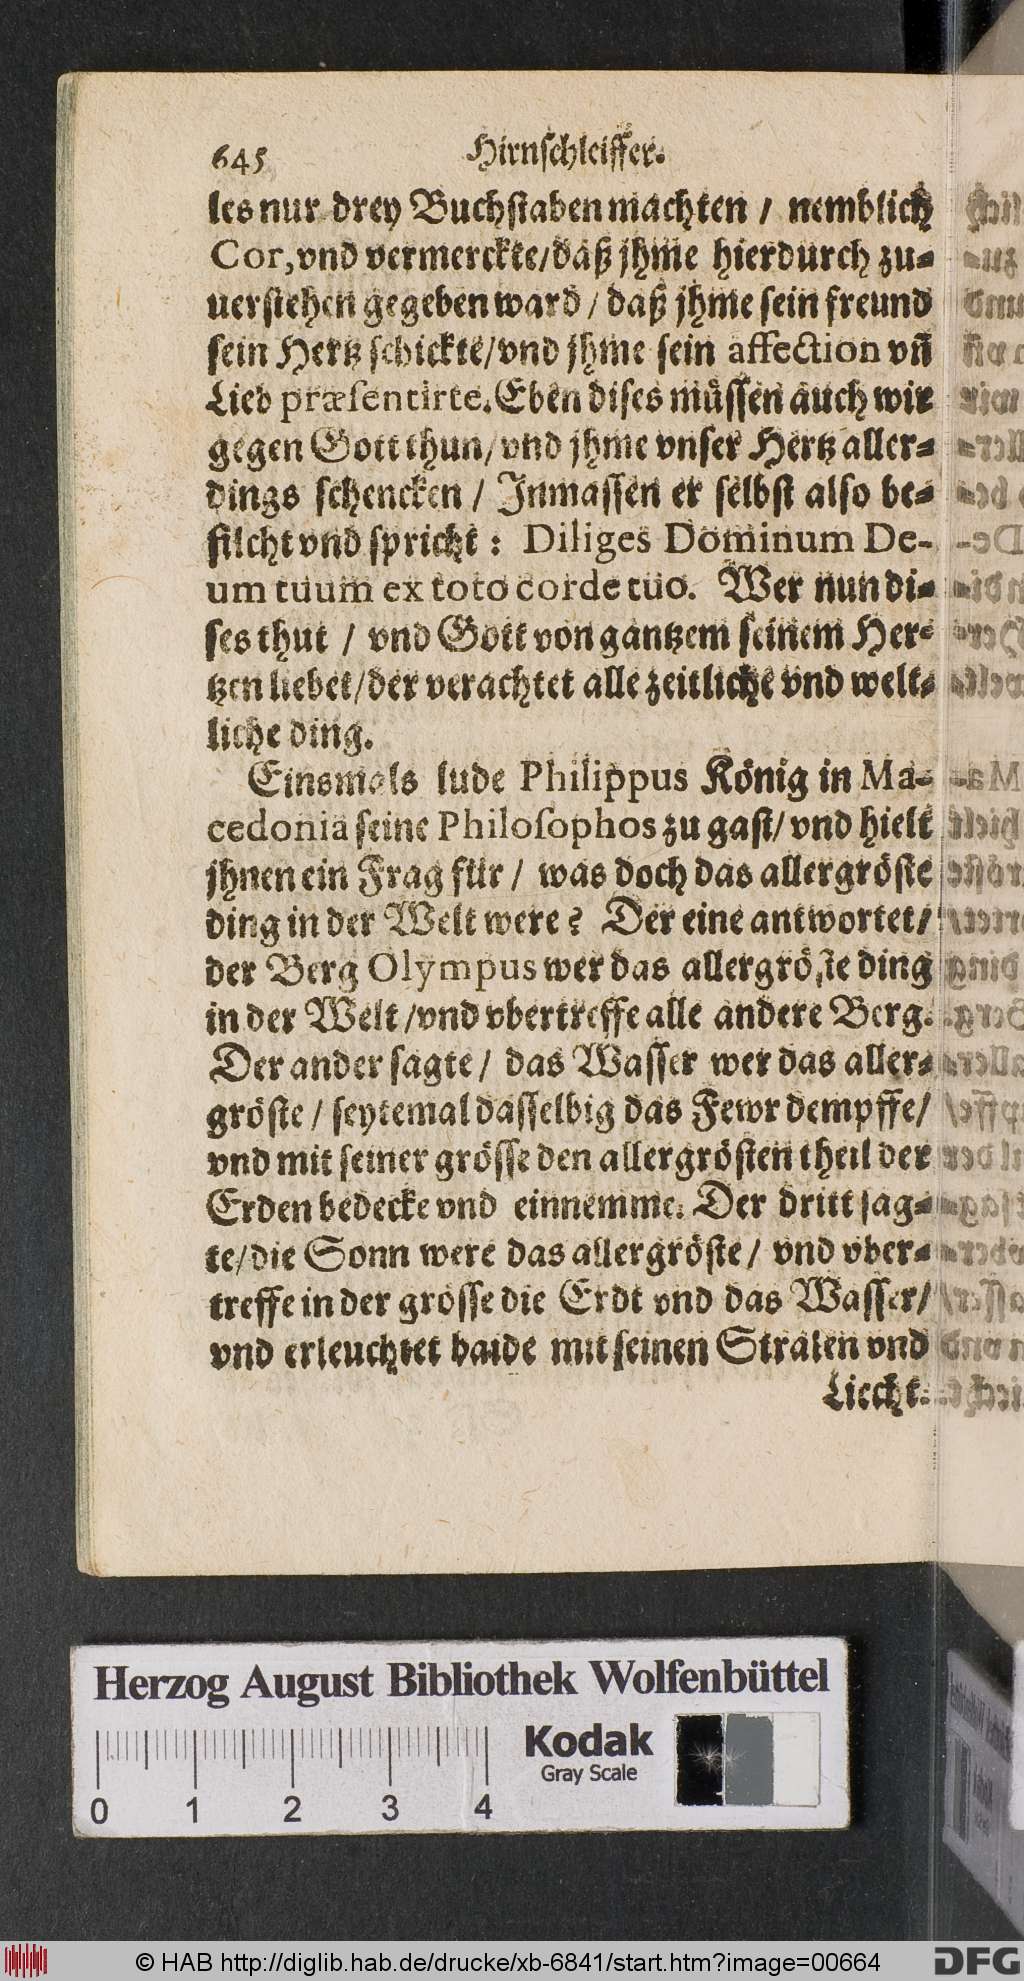 645 Hirnschleiffer.
les nur drey Buchstaben machten / nemblich
Cor, vnd vermerckte / daß jhme hierdurch zu-
uerstehen gegeben ward / daß jhme sein freund
sein Hertz schickte / vnd jhme sein affection vñ
Lieb præsentirte. Eben dises müssen auch wir
gegen Gott thun / vnd jhme vnser Hertz aller-
dings schencken / Inmassen er selbst also be-
filcht vnd spricht : Diliges Dominum De-
um tuum ex toto corde tuo. Wer nun di-
ses thut / vnd Gott von gantzem seinem Her-
tzen liebet / der verachtet alle zeitliche vnd welt-
liche ding.
Einsmals lude Philippus König in Ma-
cedonia seine Philosophos zu gast / vnd hielt
jhnen ein Frag für / was doch das allergröste
ding in der Welt were ? Der eine antwortet /
der Berg Olympus wer das allergröste ding
in der Welt / vnd vbertreffe alle andere Berg.
Der ander sagte / das Wasser wer das aller-
gröste / seytemal dasselbig das Fewr dempffe /
vnd mit seiner grösse den allergrösten theil der
Erden bedecke vnd einnemme. Der dritt sag-
te / die Sonn were das allergröste / vnd vber-
treffe in der grösse die Erdt vnd das Wasser /
vnd erleuchtet baide mit seinen Stralen vnd
Liecht.
Herzog August Bibliothek Wolfenbüttel
Kodak
Gray Scale
0 1 2 3 4
© HAB http://diglib.hab.de/drucke/xb-6841/start.htm?image=00664
DFG